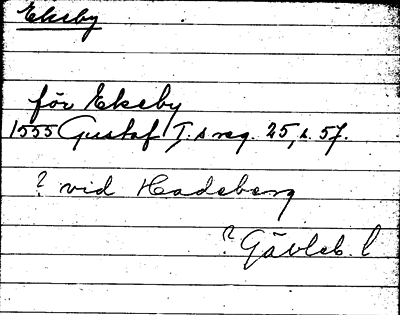 Ekeby
för Ekeby
1555 Gustaf I.s reg. 25, s. 57.
? vid Hadeberg
? Gävleb. l